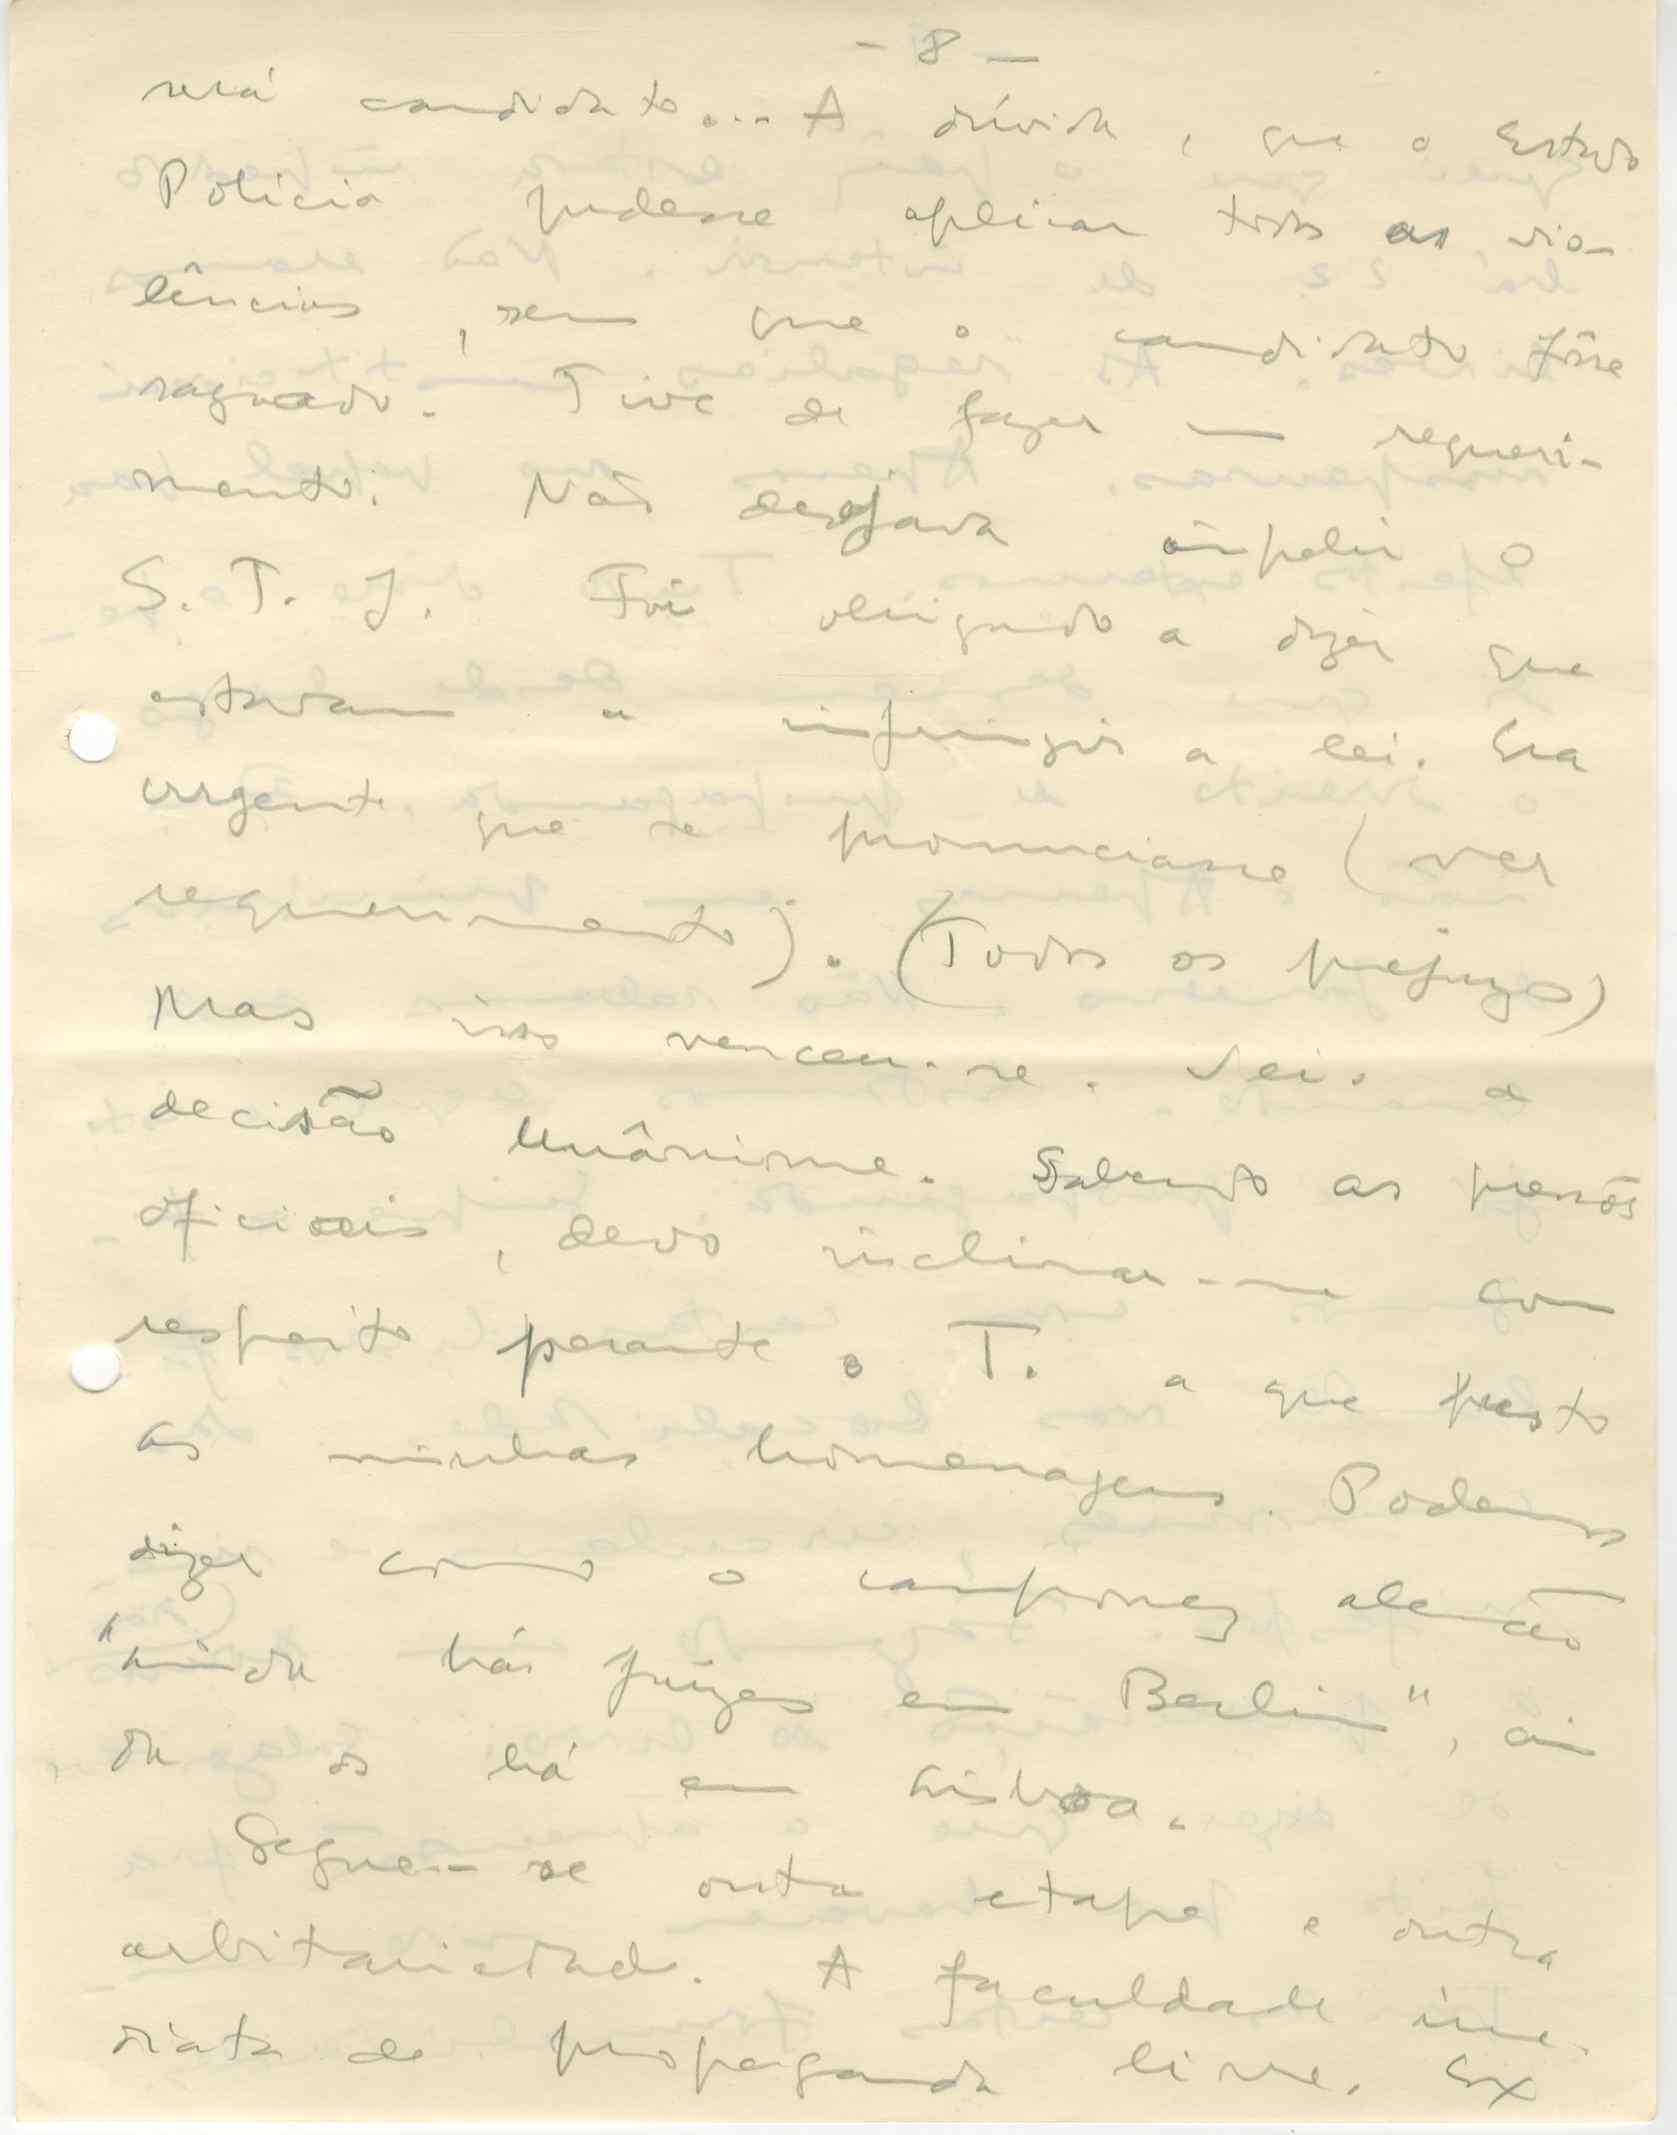 - 8 -
será candidato... A dúvida, que o Estado
Policia pudesse aplicar todas as vio-
lências, sem que o candidato fôsse
rasgado. Tive de fazer um requeri-
mento. Não desejava impelir o
S. T. J. Fui obrigado a dizer que
estavam a infringir a lei. Era
urgente que se pronunciasse (ver
requerimento). (Todos os prejuizos)
Mas isso venceu-se. Sei a
decisão unânime. Sabendo as pressões
oficiais, devo inclinar-me com
respeito perante o T. a que presto
as minhas homenagens. Podemos
dizer como o camponez alemão
"ainda há juizes em Berlim", ain
da os há em Lisboa.
Segue-se outra etapa e outra
arbitrariedade. A faculdade ime-
diata de propaganda livre. Ex